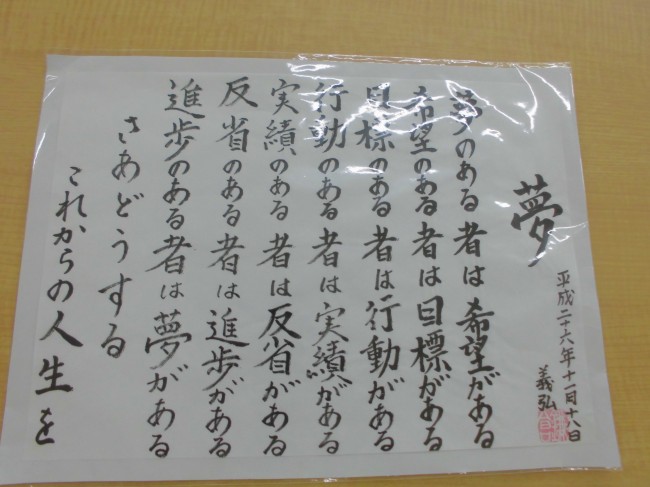 夢
平成二十六年十一月十八日
義弘
夢のある者は希望がある
希望のある者は目標がある
目標のある者は行動がある
行動のある者は実績がある
実績のある者は反省がある
反省のある者は進歩がある
進歩のある者は夢がある
さあどうする
これからの人生を